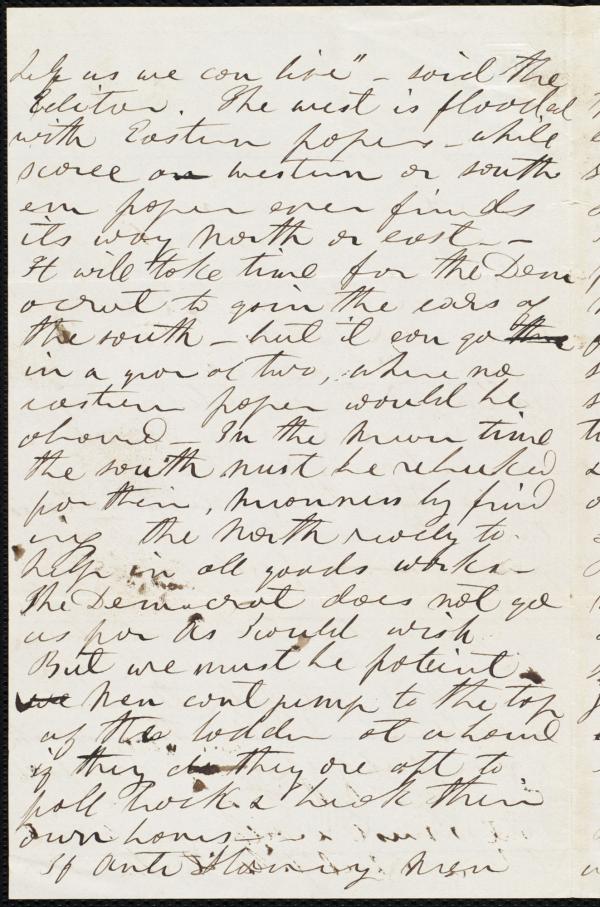 help us we can live" - said the
Editor. The west is flooded
with Eastern papers - while
scarce a western or south
ern paper ever finds
its way North or east - -
It will take time for the Dem
ocrat to gain the ears of
the south - but it can go
in a year or two, where no
eastern paper would be
allowed - In the mean time
the south must be rebuked
for their meanness by find
ing the North ready to
help in all goods works -
The Democrat does not go
as far as I would wish
But we must be patient
Men cant jump to the top
of the ladder at a bound
if they do they are apt to
fall back & break their
own bones
If anti Slavery men